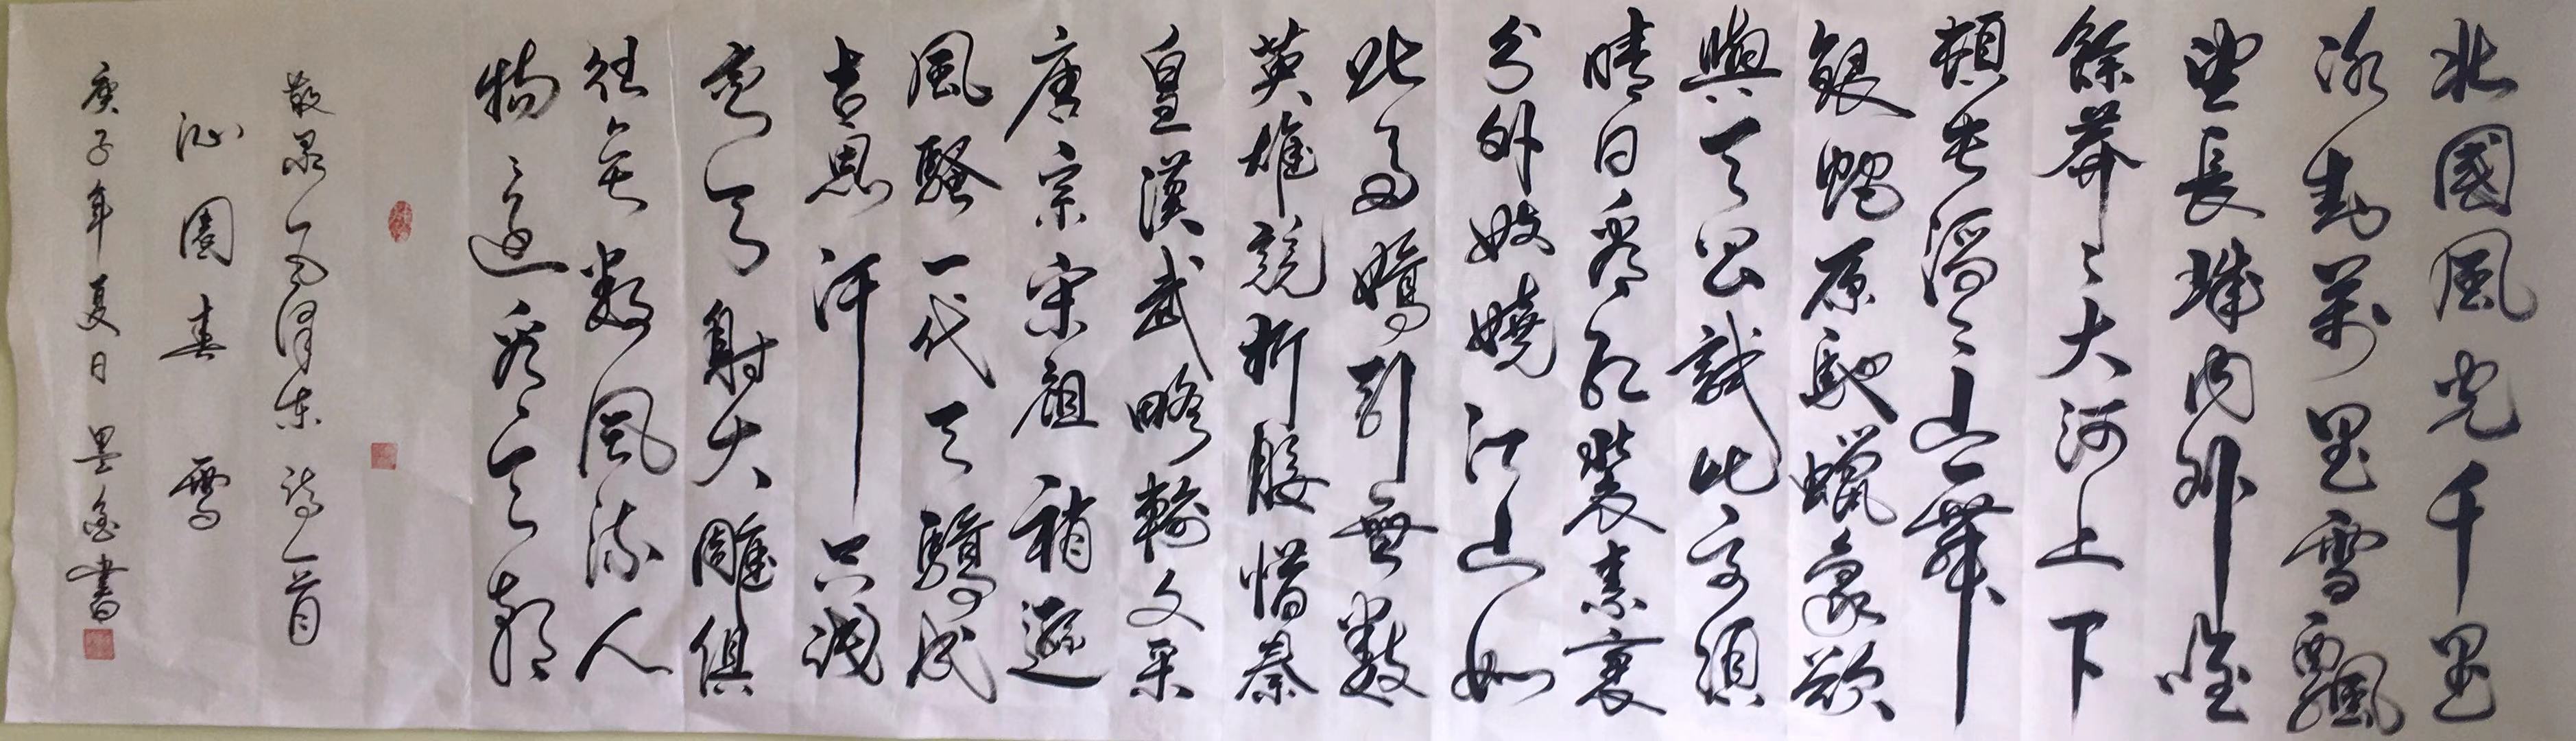 北國風光千里
冰封萬里雪飄
望長城內外唯
餘莽〻大河上下
頓失滔〻山舞
銀蛇原馳蠟象欲
與天公試比高須
晴日看紅裝素裹
分外妖嬈江山如
此多嬌引無數
英雄競折腰惜秦
皇漢武略輸文采
唐宗宋祖稍遜
風騷一代天驕成
吉思汗只識
彎弓射大雕俱
往矣數風流人
物還看今朝
敬录毛泽东詩一首
沁園春 雪
庚子年夏日 書